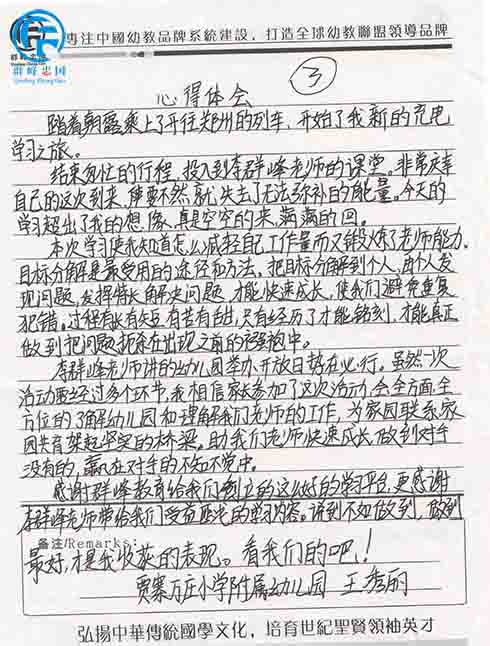 專注中國幼教品牌系統建設，打造全球幼教聯盟領導品牌
群峰忠国
③
心得体会
踏着朝露乘上了开往郑州的列车，开始了我新的充电
学习之旅。
结束匆忙的行程，投入到李群峰老师的课堂。非常庆幸
自己的这次到来，要不然，就失去了无法弥补的能量。今天的
学习超出了我的想像，真是空空的来，满满的回。
本次学习使我知道怎么减轻自己工作量而又锻炼了老师能力。
目标分解是最受用的途径和方法，把目标分解到个人，由个人发
现问题，发挥特长解决问题，才能快速成长，使我们避免重复
犯错。过程有长有短，有苦有甜，只有经历了才能铭刻，才能真正
做到把问题扼杀在出现之前的襁褓中。
李群峰老师讲的幼儿园举办开放日势在必行。虽然一次
活动要经过多个环节，我相信家长参加了这次活动，会全方面，全
方位的了解幼儿园和理解我们老师的工作，为家园联系，家
园共育架起坚实的桥梁。助我们老师快速成长，做到对手
没有的，赢在对手的不知不觉中。
感谢群峰教育给我们创立的这么好的学习平台，更感谢
李群峰老师带给我们受益匪浅的学习内容。讲到不如做到，做到
备注/Remarks:
最好，才是我收获的表现。看我们的吧！
贾寨万庄小学附属幼儿园 王秀丽
弘揚中華傳統國學文化，培育世紀聖賢領袖英才